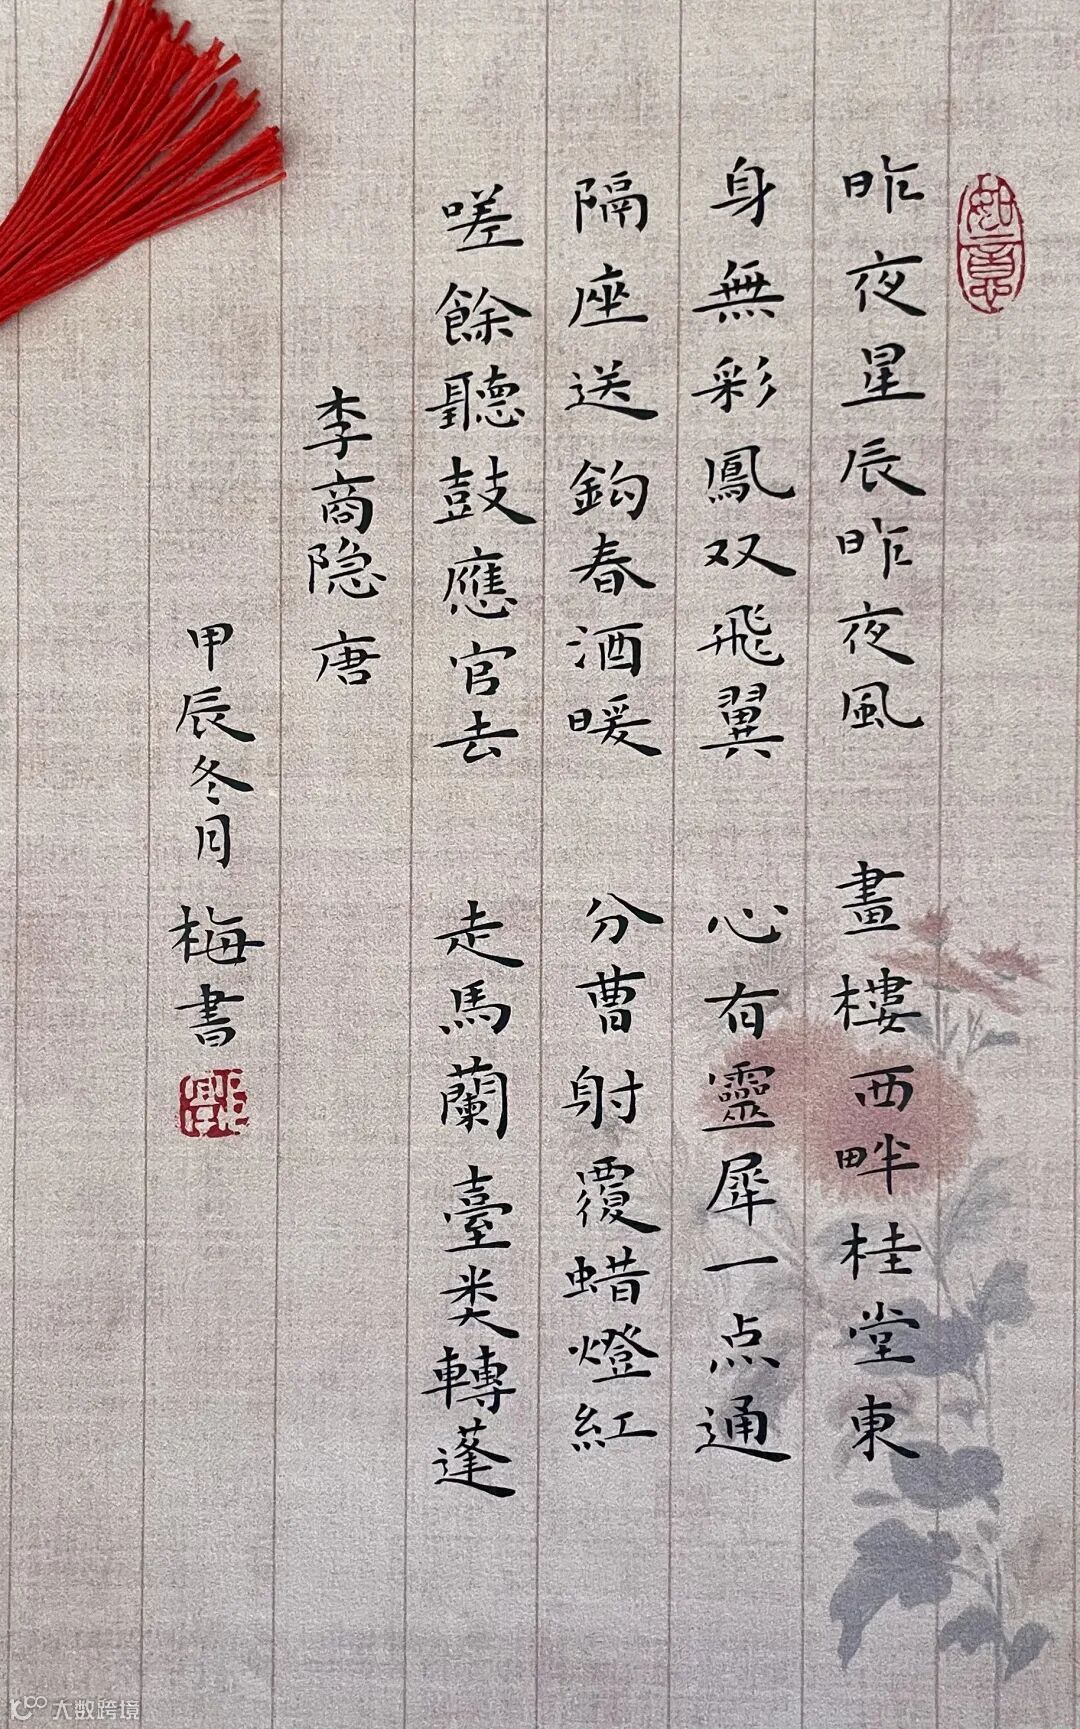 如意
昨夜星辰昨夜風 畫樓西畔桂堂東
身無彩鳳双飛翼 心有靈犀一点通
隔座送鈎春酒暖 分曹射覆蜡燈紅
嗟餘聽鼓應官去 走馬蘭臺类轉蓬
李商隐 唐
甲辰冬月 梅書
大数跨境